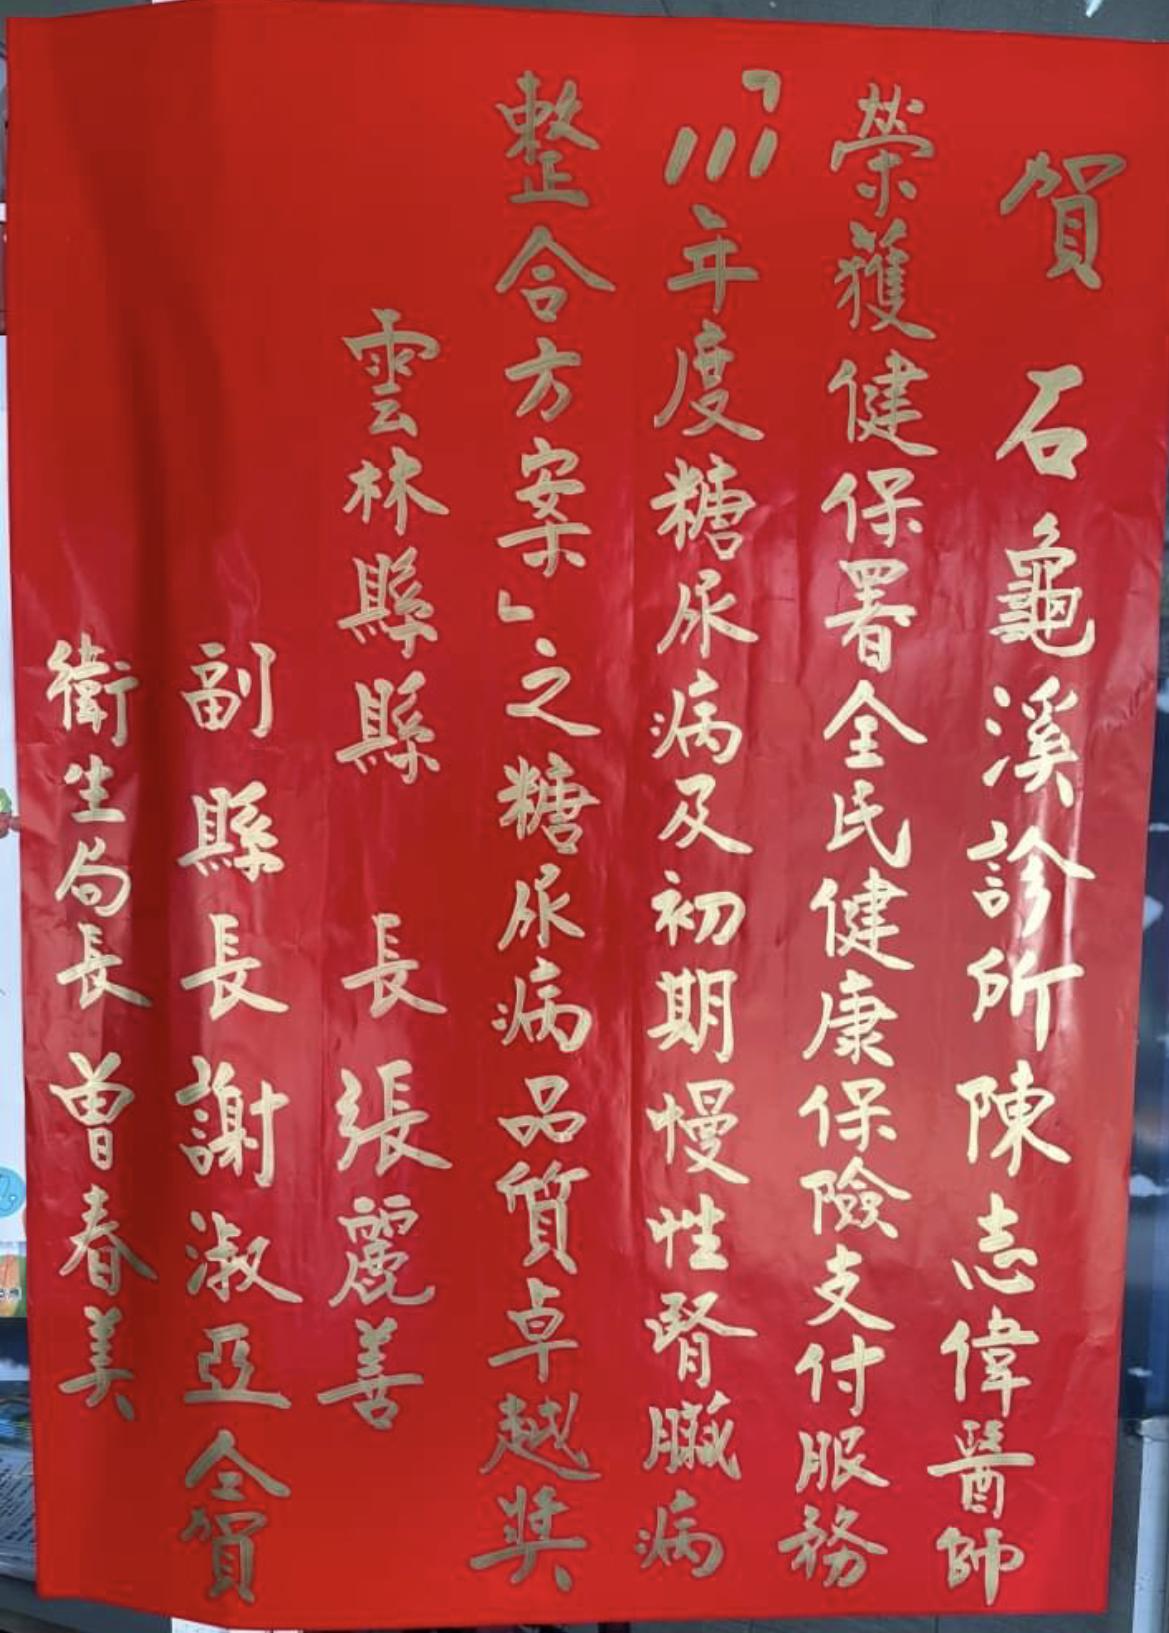 賀 石龜溪診所陳志偉醫師
榮獲健保署全民健康保險支付服務
「111年度糖尿病及初期慢性腎臟病
整合方案」之糖尿病品質卓越獎
雲林縣縣 長 張麗善
副縣長 謝淑亞 仝賀
衛生局長 曾春美